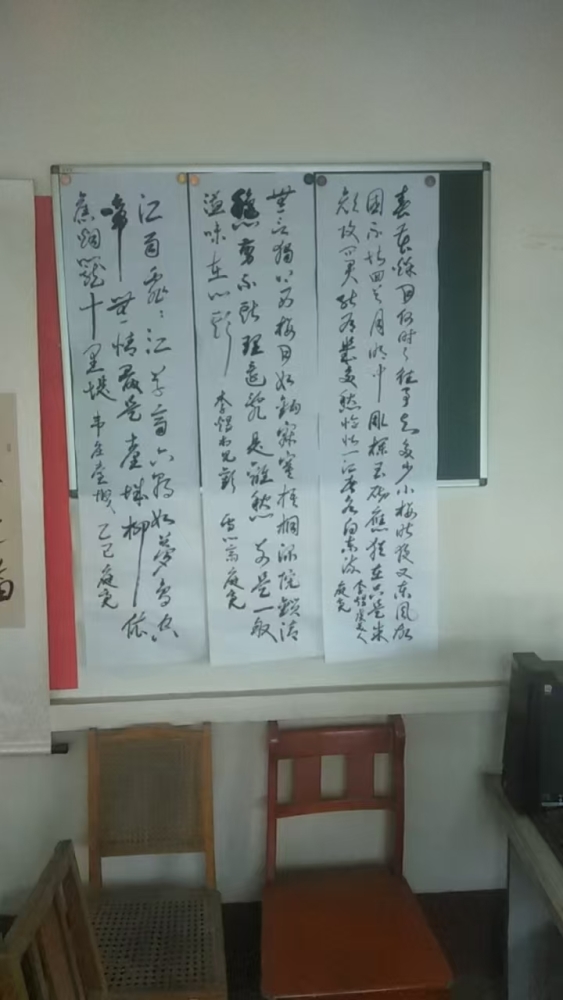 春花秋月何时了往事知多少小楼昨夜又东风故
国不堪回首月明中雕栏玉砌应犹在只是朱
颜改问君能有几多愁恰似一江春水向东流 李煜虞美人
無言獨上西楼月如鈎寂寞梧桐深院鎖清
秋剪不断理還亂是離愁别是一般
滋味在心头 李煜相见歡
江雨霏〻江草齊六朝如夢鸟空
啼無情最是臺城柳依
舊烟籠十里堤 韦庄臺城 乙巳